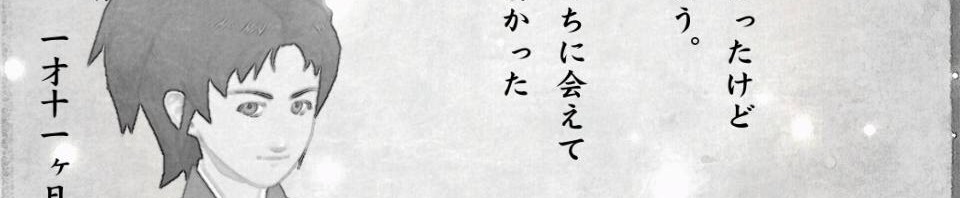 ったけど
う。
ちに会えて
かった
一才十一ヶ月